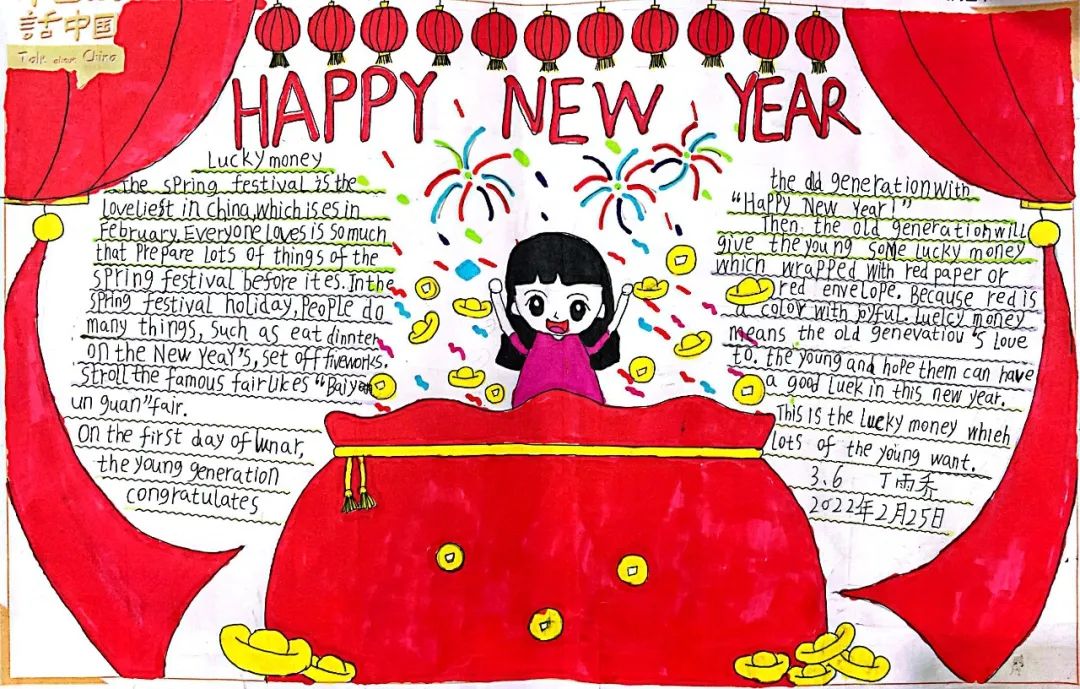 話中国
Talk about China
HAPPY NEW YEAR
Lucky money
the spring festival is the
loveliest in China, which is es in
February. Everyone loves is so much
that prepare lots of things of the
spring festival before ites. In the
spring festival holiday, people do
many things, such as eat dinnter
on the New Year's, set off fiveworks.
Stroll the famous fair likes "Baiy
un guan" fair.
On the first day of lunar,
the young generation
congratulates
the old generation with
"Happy New Year!"
Then the old generation will
give the young some lucky money
which wrapped with red paper or
red envelope. Because red is
a color with joyful. luelcy money
means the old genevatiou's Love
to. the young and hope them can have
a good luek in this new year.
This is the lucky money whieh
lots of the young want.
3.6 丁雨秀
2022年2月25日